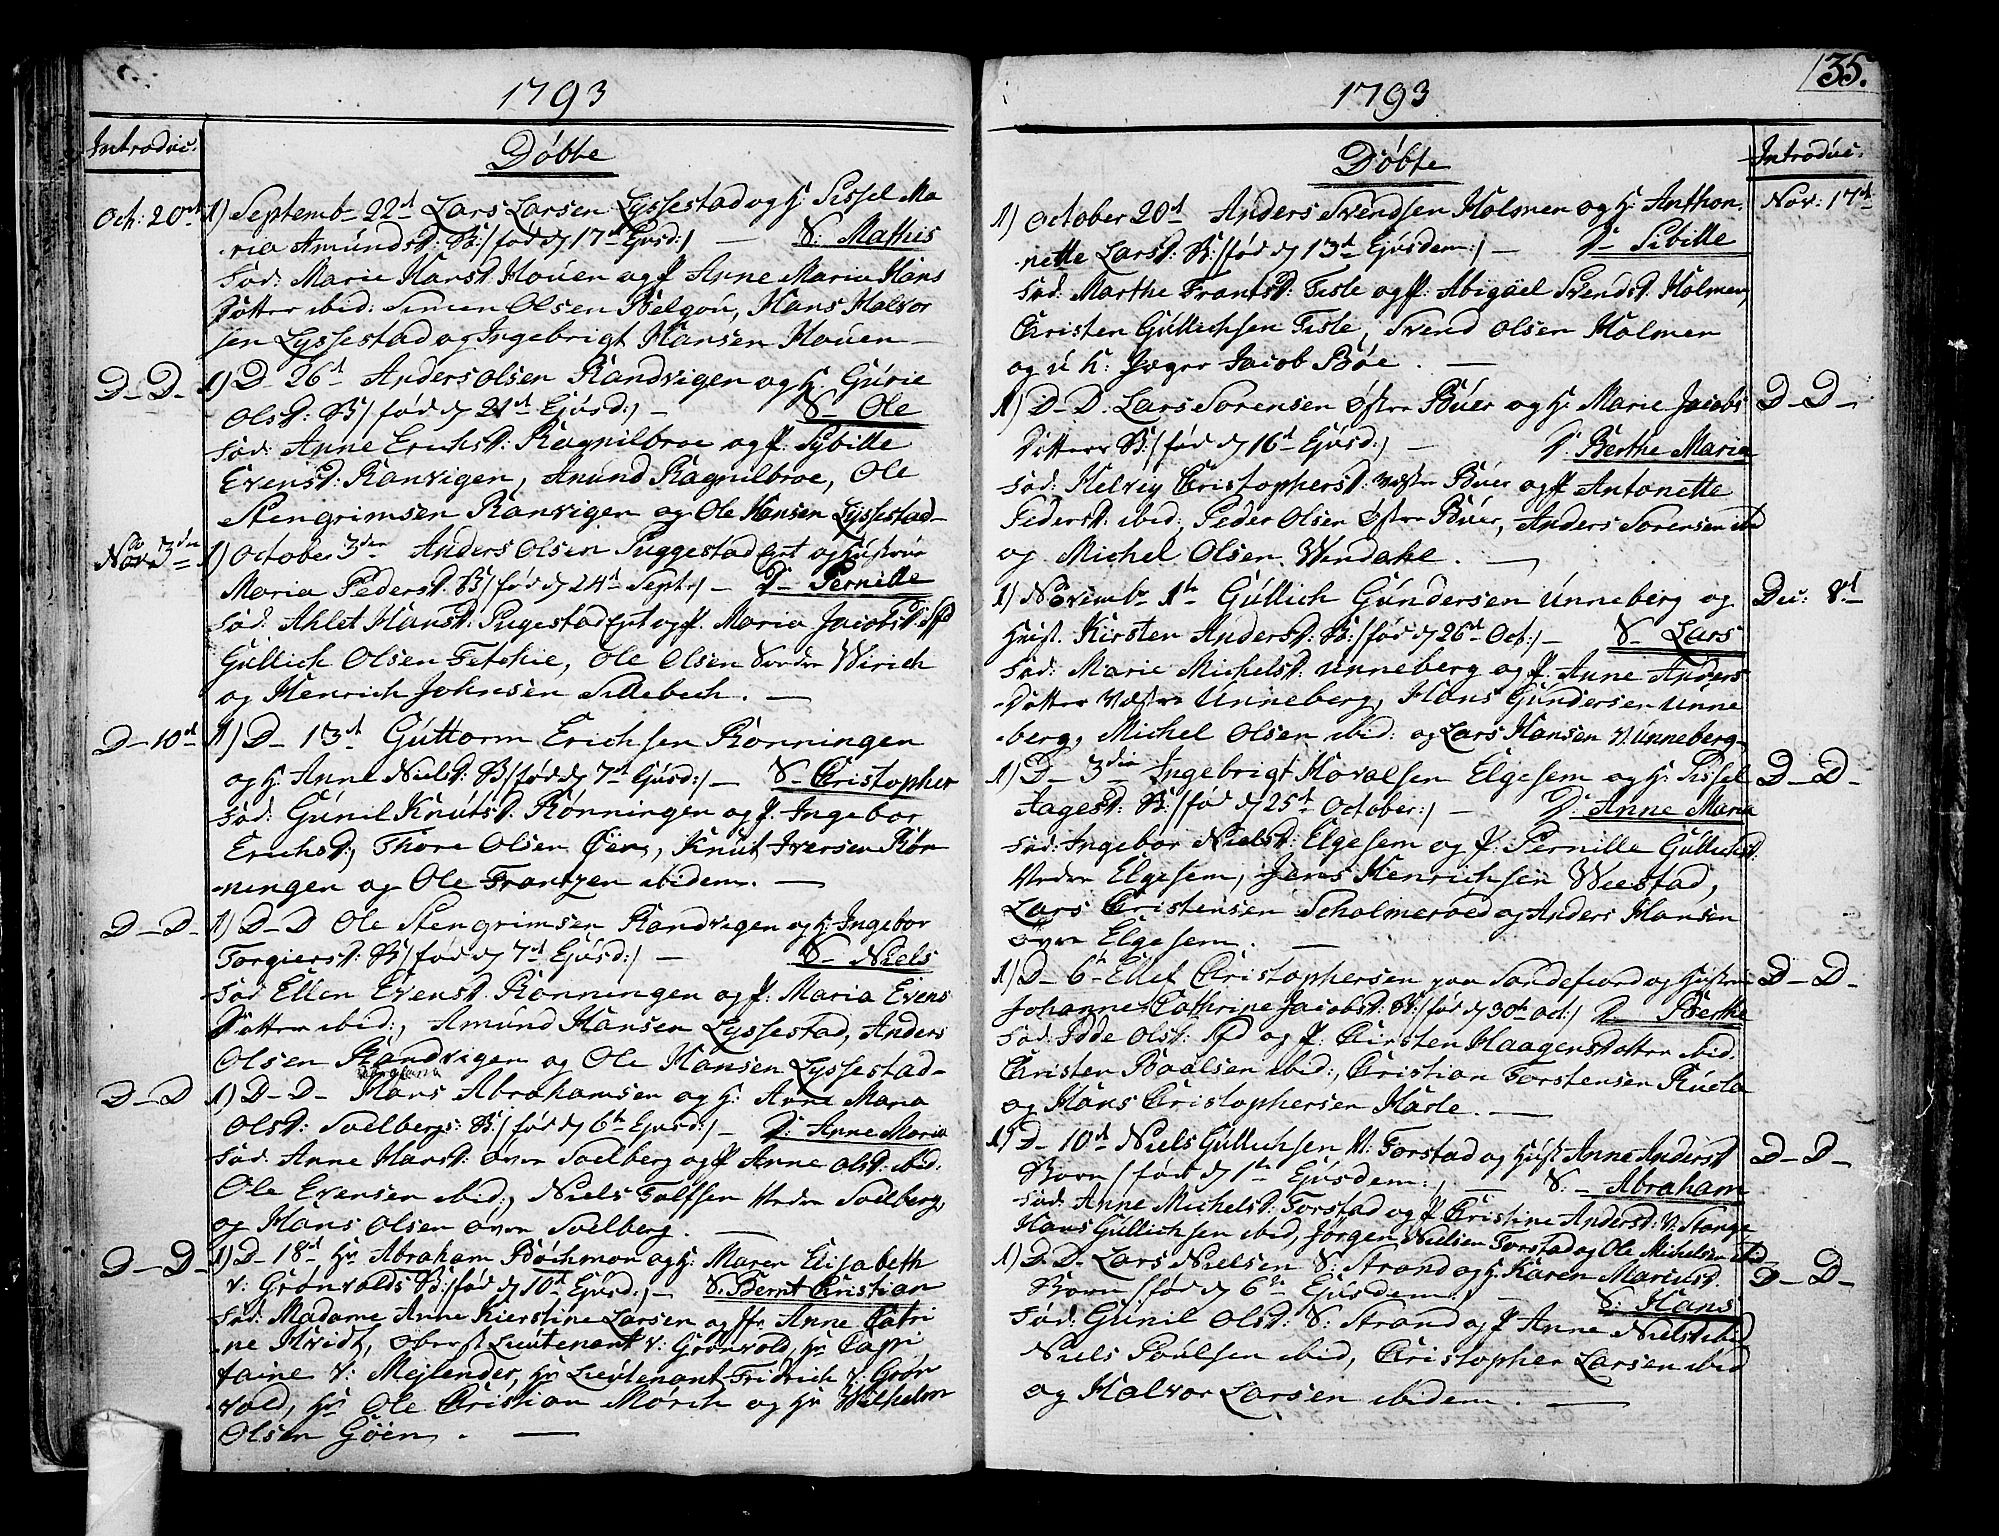 1793
Introduc:
Döbte
Oct: 20de 1) Septemb 22d Lars Larsen Lyssestad og H: Sissel Ma
ria Amundsd: B:/ fød d 17d Ejusd:/ — S: Mathis
Fad: Marie Hansd: Houen og P. Anne Maria Hans
Datter ibid: Simen Olsen Helgou, Hans Halvor
sen Lyssestad og Ingebrigt Hansen Houen —
D—D— 1) D— 26d Anders Olsen Randvigen og H: Gurie
Olsd: B/ fød d 21d Ejusd:/ — S— Ole
Fad: Anne Erichsd: Ragnilbroe og P. Sybille
Evensd: Ranvigen, Amund Ragnilbroe, Ole
Stengrimsen Ranvigen og Ole Hansen Lyssestad—
Nov: 3die 1) October 3die Anders Olsen Puggestad Eget og Hustrue
Maria Pedersd: B/ fød d 24d Sept:/ — D— Pernille
Fad: Ahlet Hansd: Pugestad Eget og P. Maria Jacobsd:
Gullich Olsen Fetchie, Ole Olsen Virich
og Henrich Johnsen Sillebech. —
D— 10d 1) D— 13d Guttorm Erichsen Rønningen
og H: Anne Nielsd: B/ fød d 7d Ejusd:/ — S— Christopher
Fad: Gunil Knutsd: Rønningen og P. Ingebor
Erichsd:, Thore Olsen Öen, Knut Iversen Røn
ningen og Ole Frantzen ibidem. —
D—D— 1) D—D Ole Stengrimsen Randvigen og H: Ingebor
Torgiersd: B/ fød d 7d Ejusd:/ — S— Niels
Fad Ellen Evensd: Rønningen og P. Maria Evens
Datter ibid:, Amund Hansen Lyssestad, Anders
Olsen Randvigen og Ole Hansen Lyssestad—
D—D 1) D—D— Hans Abrahamsen og H: Anne Maria
Olsd: Soelberg: B:/ fød d 6t Ejusd:/ — D: Anne Maria
Fad: Anne Hansd: over Soelberg og P Anne Olsd: ibid:
Ole Evensen ibid:, Niels Tolfsen Neder Soelberg,
og Hans Olsen over Soelberg. —
D—D— 1) D— 18d, Hr Abraham Böchmon og H: Maren Elisabeth
v: Grönvolds B:/ fød d 10d Ejusd:/ — S. Bernt Christian
Fad: Madame Anne Kierstine Larsen og Jfr Anne Catri
ne Hvidt, Oberst Lieutenant v: Grönvold, Hr Capi
taine v: Mejlender, Hr Lieutenant Fridrich v: Grön
vold, Hr Ole Christian Mörch og Hr Wilhelm
Olsen Göen. —
1793
35.
Döbte
Introduc:
1) October 20d Anders Svendsen Holmen og H: Anthon Nov: 17d
nette Larsd: B:/ fød d 13d Ejusdem:/ — D— Sibille
Fad: Marthe Frantsd: Fisle og P: Abigael Svendsd: Holmen,
Christen Gullichsen Fisle, Svend Olsen Holmen
og u K: Jæger Jacob Böe. —
1) D—D. Lars Sorensen Østre Buer og H: Marie Jacobs D—D—
Datters B:/ fød d 16d Ejusd:/ — D. Berthe Maria
Fad: Helvig Christophersd: Vestre Buer og P Antonette
Pedersd: ibid:, Peder Olsen Østre Buer, Anders Sorensen ibd
og Michel Olsen Vindahl. —
1) Novemb 1te Gullich Gundersen Unneberg og Dec: 8d—
Hust. Kirsten Andersd: B:/ fød d 26d Oct:/ — S— Lars
Fad: Marie Michelsd: Unneberg og P. Anne Anders
Datter Vestre Unneberg, Hans Gundersen Unne
berg, Michel Olsen ibid: og Lars Hansen V. Unneberg—
1) D— 3die Ingebrigt Hovalsen Elgesem og H: Sissel D—D—
Aagesd: B:/ fød d 25d October:/ — D: Anne Maria
Fad: Ingebor Nielsd: Elgesem og P: Pernille Gullichsd:
Neder Elgesem, Jens Henrichsen Weestad,
Lars Christensen Scholmeroed og Anders Hansen
over Elgesem. —
1) D— 6t Ellef Christophersen paa Sandefiord og Hustrue D—D—
Johanne Cathrine Jacobsd: B:/ fød d 30d Oct:/ D— Berthe
Fad: Idde Olsd: Sfd og P: Kirsten Haagensdatter ibid:
Christen Paalsen ibid:, Christian Torstensen Rucla
og Hans Christophersen Hasle. —
1) D— 10d Niels Gullichsen N: Forstad og Hust. Anne Andersd D—D—
Børn / fød d 1te Ejusdem:/ — S:— Abraham
Fad: Anne Michelsd: Forstad og P Christine Andersd: V: Stange
Hans Gullichsen ibid, Jørgen Nielsen Forstad og Ole Michelsen ibid
1) D—D— Lars Nielsen S: Strand og H: Karen Mariusd: D—D—
Børn / fød d 6te Ejusdem:/ — S: Hans
Fad: Gunil Olsd: S: Strand og P Anne Nielsd: ibid
Niels Poulsen ibid, Christopher Larsen ibid
og Halvor Larsen ibidem. —